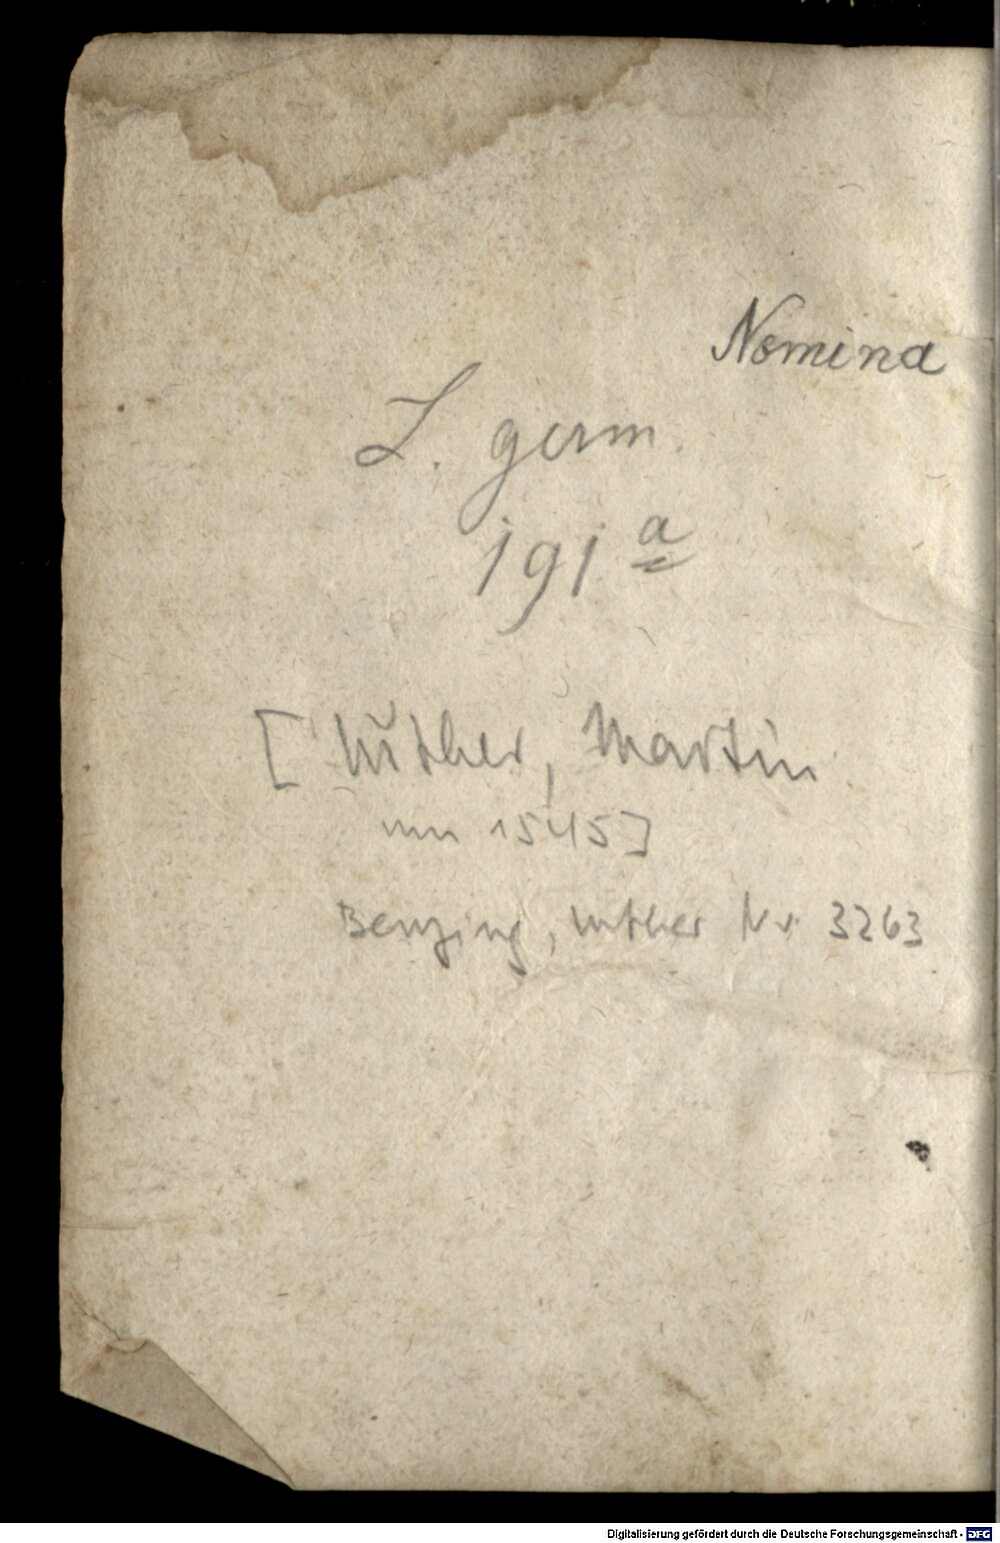 Nomina
L. germ.
191 a
[Luther, Martin
um 1545]
Benzing, Luther Nr. 3263
Digitalisierung gefördert durch die Deutsche Forschungsgemeinschaft - DFG